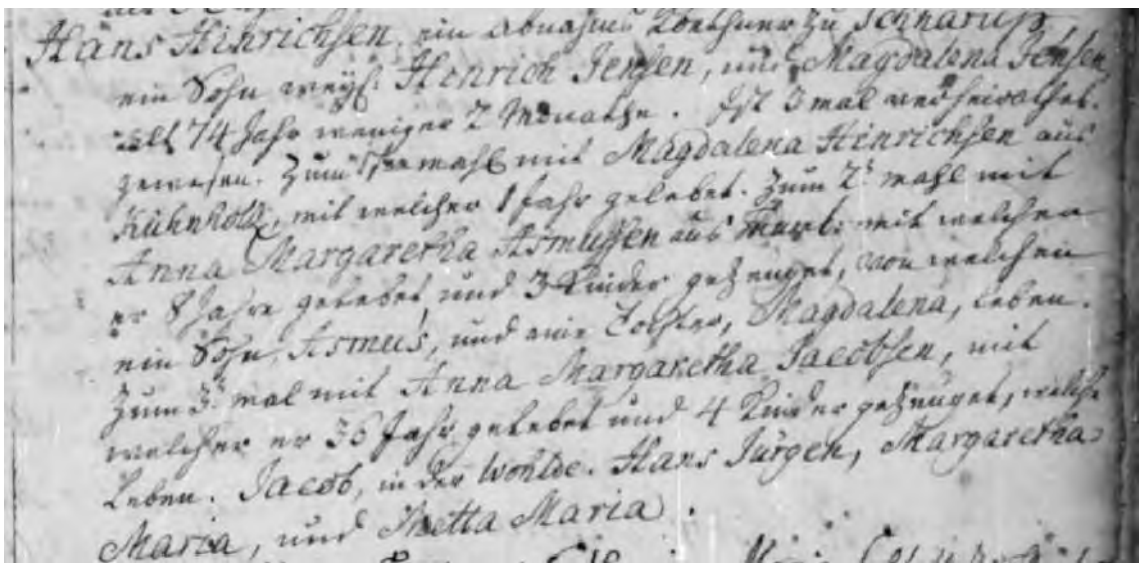 Hans Hinrichsen, ein Abnahms Köthner zu Schnarup,
ein Sohn weyl. Hinrich Jensen, und Magdalena Jensen,
alt 74 Jahr weniger 2 Monathe. Ist 3 mal verheirathet
gewesen. Zum mahl mit Magdalena Hinrichsen aus
Kühnholtz, mit welcher 1 Jahr gelebet. Zum 2. mahl mit
Anna Margaretha Asmussen aus mit welcher
er 8 Jahre gelebet, und 3 Kinder gezeuget, von welchen
ein Sohn, Asmus, und eine Tochter, Magdalena, leben.
Zum 3. mal mit Anna Margaretha Jacobsen, mit
welcher er 36 Jahr gelebet und 4 Kinder gezeuget, welche
leben. Jacob, in der Wohlde. Hans Jürgen, Margaretha
Maria, und Metta Maria.